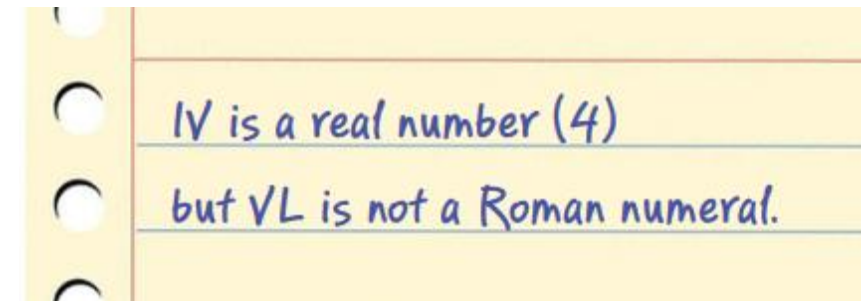 IV is a real number (4)
but VL is not a Roman numeral.